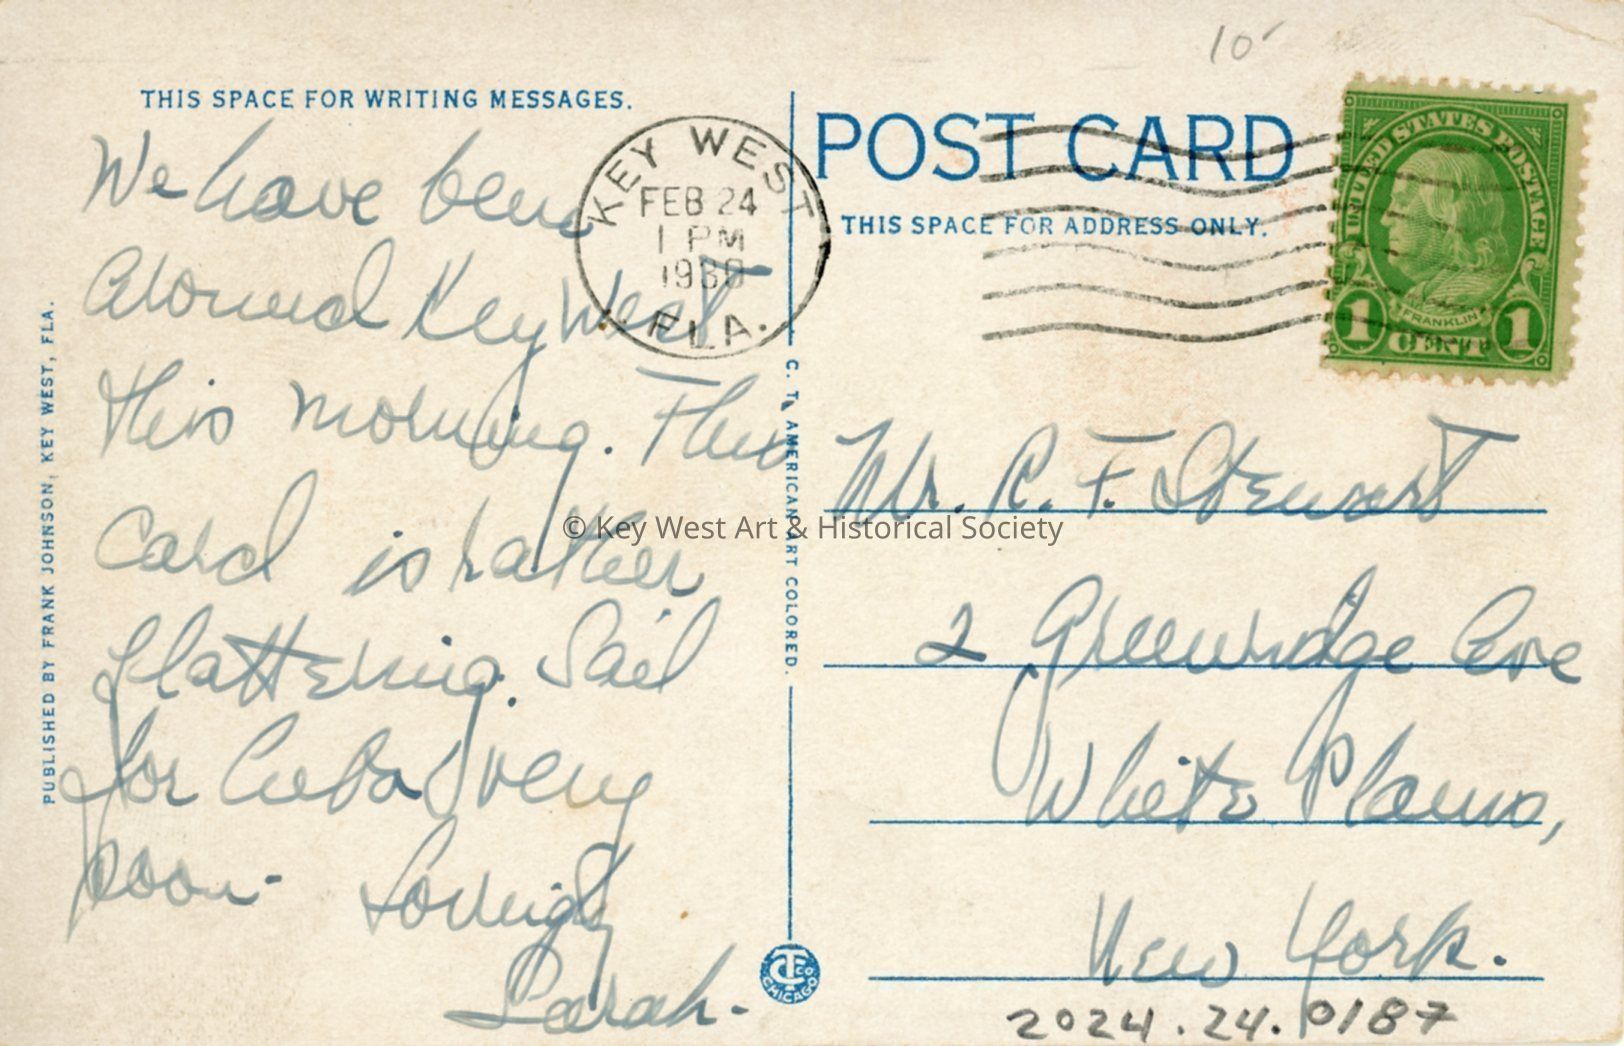 10
THIS SPACE FOR WRITING MESSAGES.
We have been
around Key West
this morning. This
card is rather
flattering. Sail
for Cuba very
soon. Lovingly
Sarah.
PUBLISHED BY FRANK JOHNSON, KEY WEST, FLA.
KEY WEST
FEB 24
1 PM
1930
FLA.
C. T. AMERICAN ART COLORED.
CTCO.
CHICAGO
POST CARD
THIS SPACE FOR ADDRESS ONLY.
UNITED STATES POSTAGE
FRANKLIN
1 CENT 1
Mr. R. F. Stewart
2 Greenridge Ave
White Plains,
New York.
2024.24.0187
© Key West Art & Historical Society